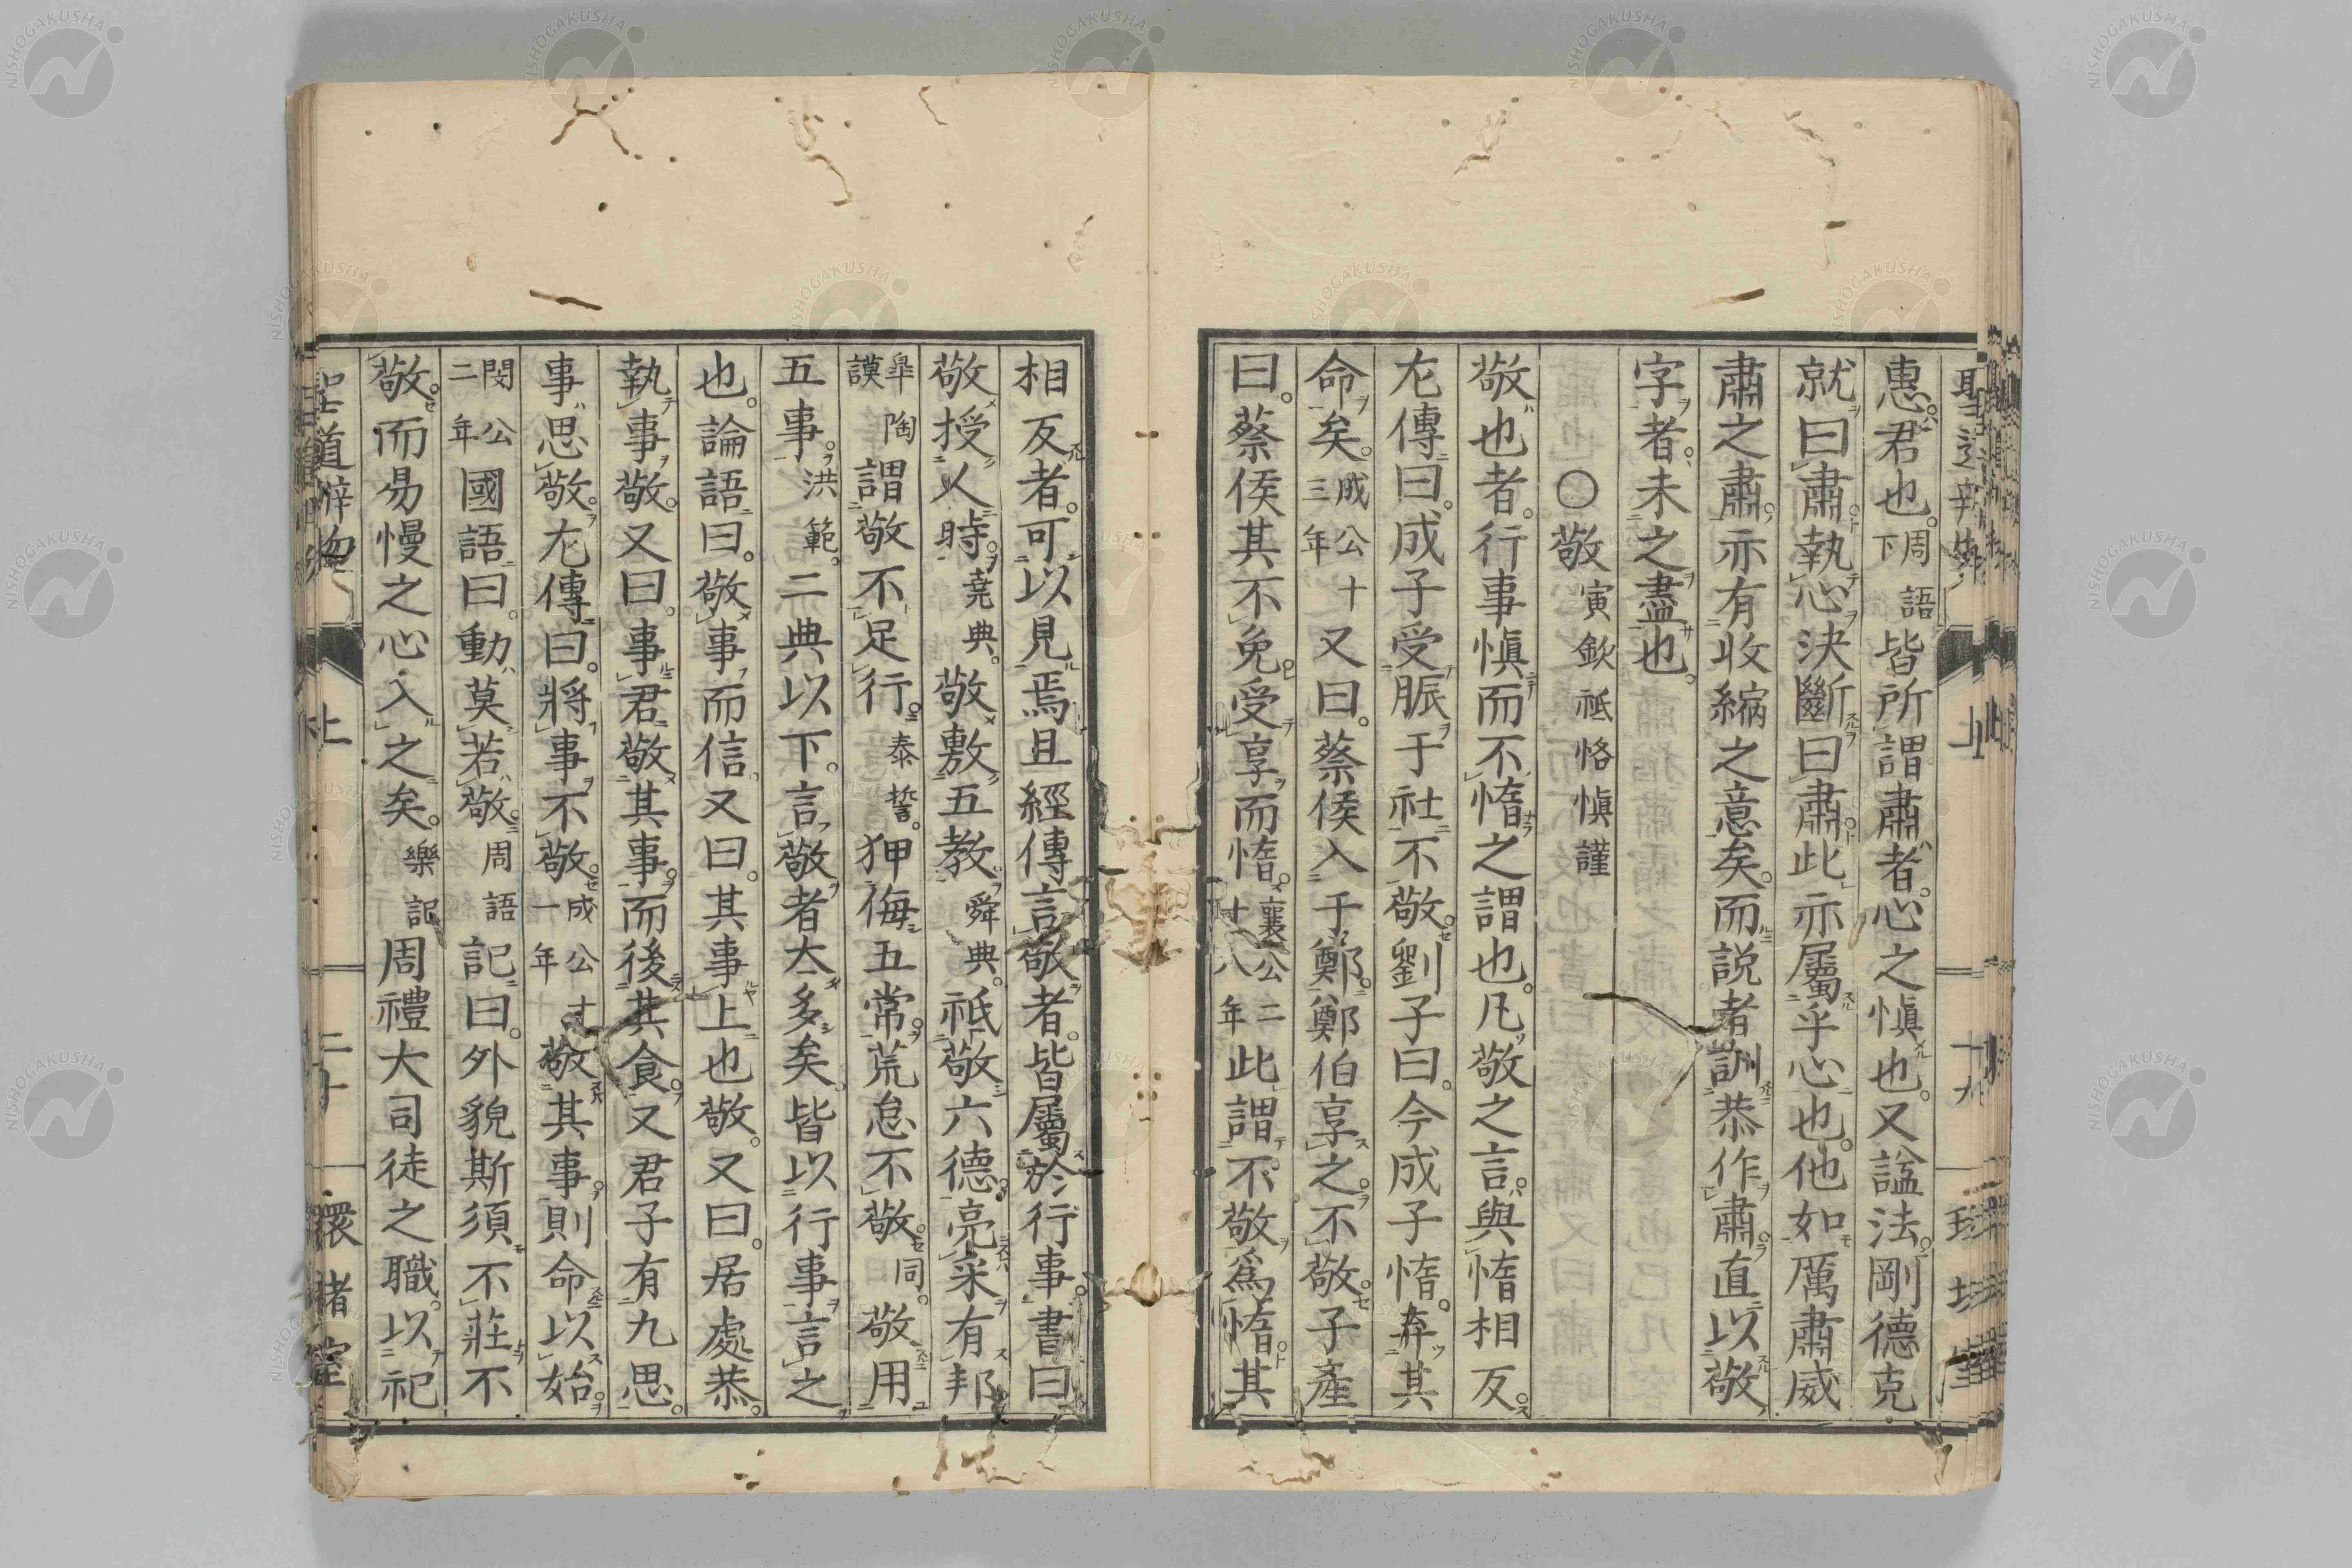 惠君也周語下皆所謂肅者心之愼也又諡法剛德克
就曰肅執心決斷曰肅此亦屬乎心也他如厲肅威
肅之肅亦有收縮之意矣而説者訓恭作肅直以敬
字者未之盡也
〇敬寅欽祗恪愼謹
敬也者行事愼而不惰之謂也凡敬之言與惰相反
左傳曰成子受脤于社不敬劉子曰今成子惰弃其
命矣成公十三年又曰蔡侯入于鄭鄭伯享之不敬子產
曰蔡侯其不免受享而惰襄公二十八年此謂不敬爲惰其
相反者可以見焉且經傳言敬者皆屬於行事書曰
敬授人時堯典敬敷五教舜典祗敬六德亮采有邦
皐陶謨謂敬不足行泰誓狎侮五常荒怠不敬同敬用
五事洪範二典以下言敬者太多矣皆以行事言之
也論語曰敬事而信又曰其事上也敬又曰居處恭
執事敬又曰事君敬其事而後其食又君子有九思
事思敬左傳曰將事不敬成公十一年敬其事則命以始
閔公二年國語曰動莫若敬周語記曰外貌斯須不莊不
敬而易慢之心入之矣樂記周禮大司徒之職以祀
聖道辨物 上 二十 環堵室